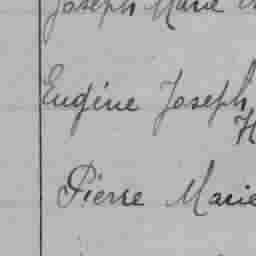 Joseph Marie
Eugène Joseph
H
Pierre Marie